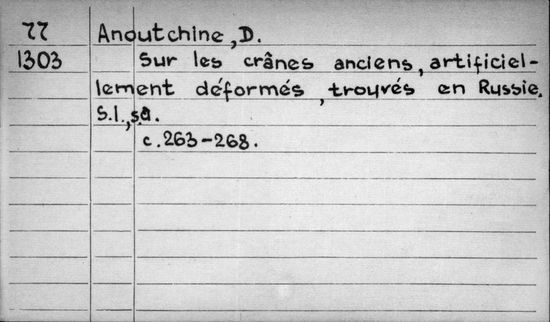 77 Anoutchine, D.
1303 Sur les crânes anciens, artificiel-
lement déformés, trouvés en Russie.
S.l., sa.
c. 263-268.